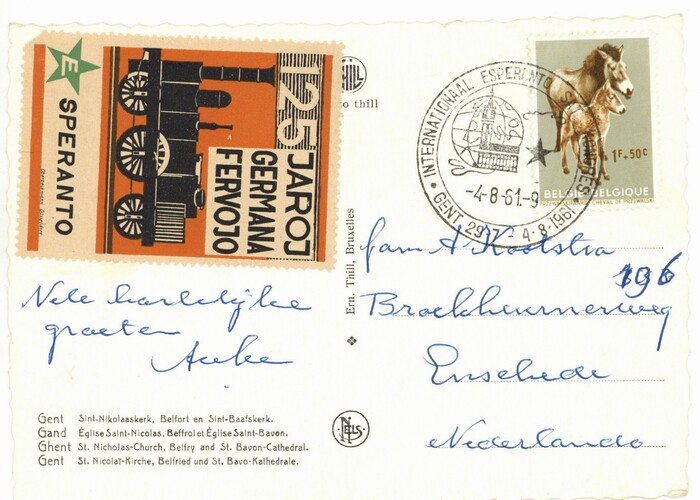 E
SPERANTO
125 JAROJ
GERMANA
FERVOJO
to thill
INTERNATIONAAL ESPERANTO
GENT 29-7 - 4-8-1961
-4-8-61-9
1F+50c
BELGIË-BELGIQUE
CHEVAL DE PRZEWALSKI
Ern. Thill, Bruxelles
Fam A Kooistra
196
Broekheurnerweg
Enschede
Nederlando
Vele hartelijke
groeten
Auke
Gent Sint-Nikolaaskerk, Belfort en Sint-Baafskerk.
Gand Église Saint-Nicolas, Beffroi et Église Saint-Bavon.
Ghent St. Nicholas-Church, Belfry and St. Bavon-Cathedral.
Gent St. Nicolat-Kirche, Belfried und St. Bavo-Kathedrale.
NELS